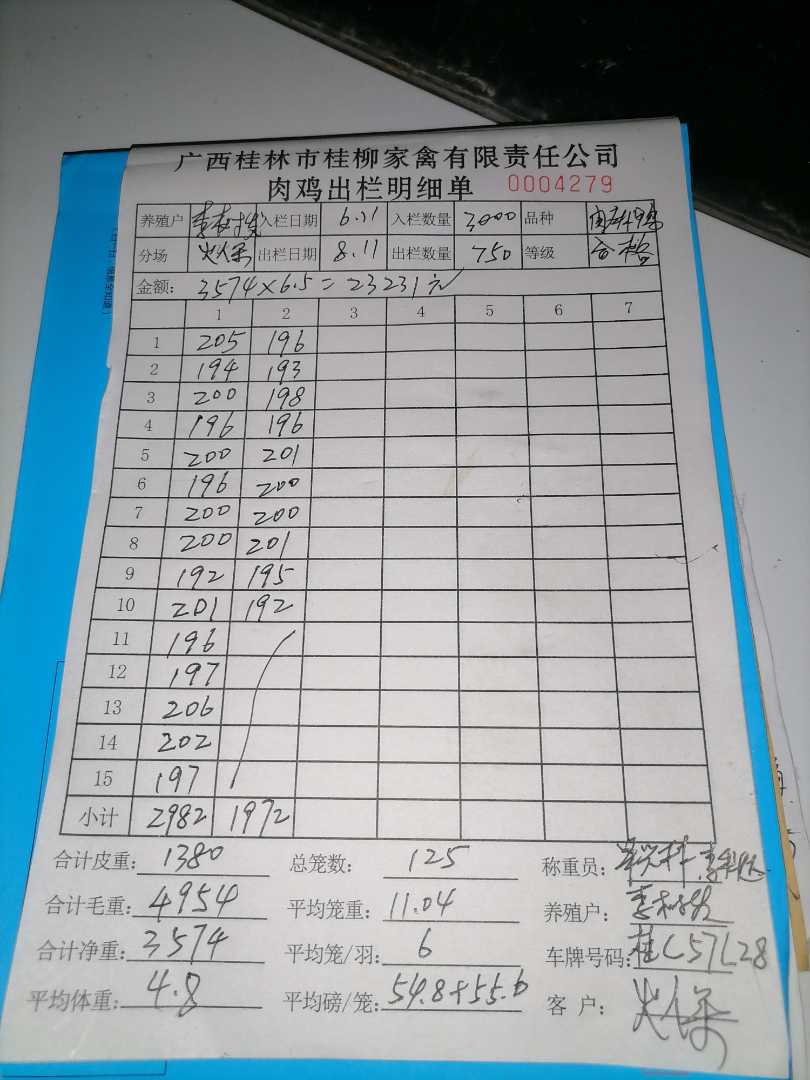 广西桂林市桂柳家禽有限责任公司
肉鸡出栏明细单 0004279
养殖户 入栏日期 6.21 入栏数量 3000 品种
分场 出栏日期 8.11 出栏数量 750 等级 合格
金额: 3574×6.5=23231元
1 2 3 4 5 6 7
1 205 196
2 194 193
3 200 198
4 196 196
5 200 201
6 196 200
7 200 200
8 200 201
9 192 195
10 201 192
11 196
12 197
13 206
14 202
15 197
小计 2982 1972
合计皮重: 1380 总笼数: 125 称重员:
合计毛重: 4954 平均笼重: 11.04 养殖户:
合计净重: 3574 平均笼/羽: 6 车牌号码: 桂C57L28
平均体重: 4.8 平均磅/笼: 54.8+55.6 客户: